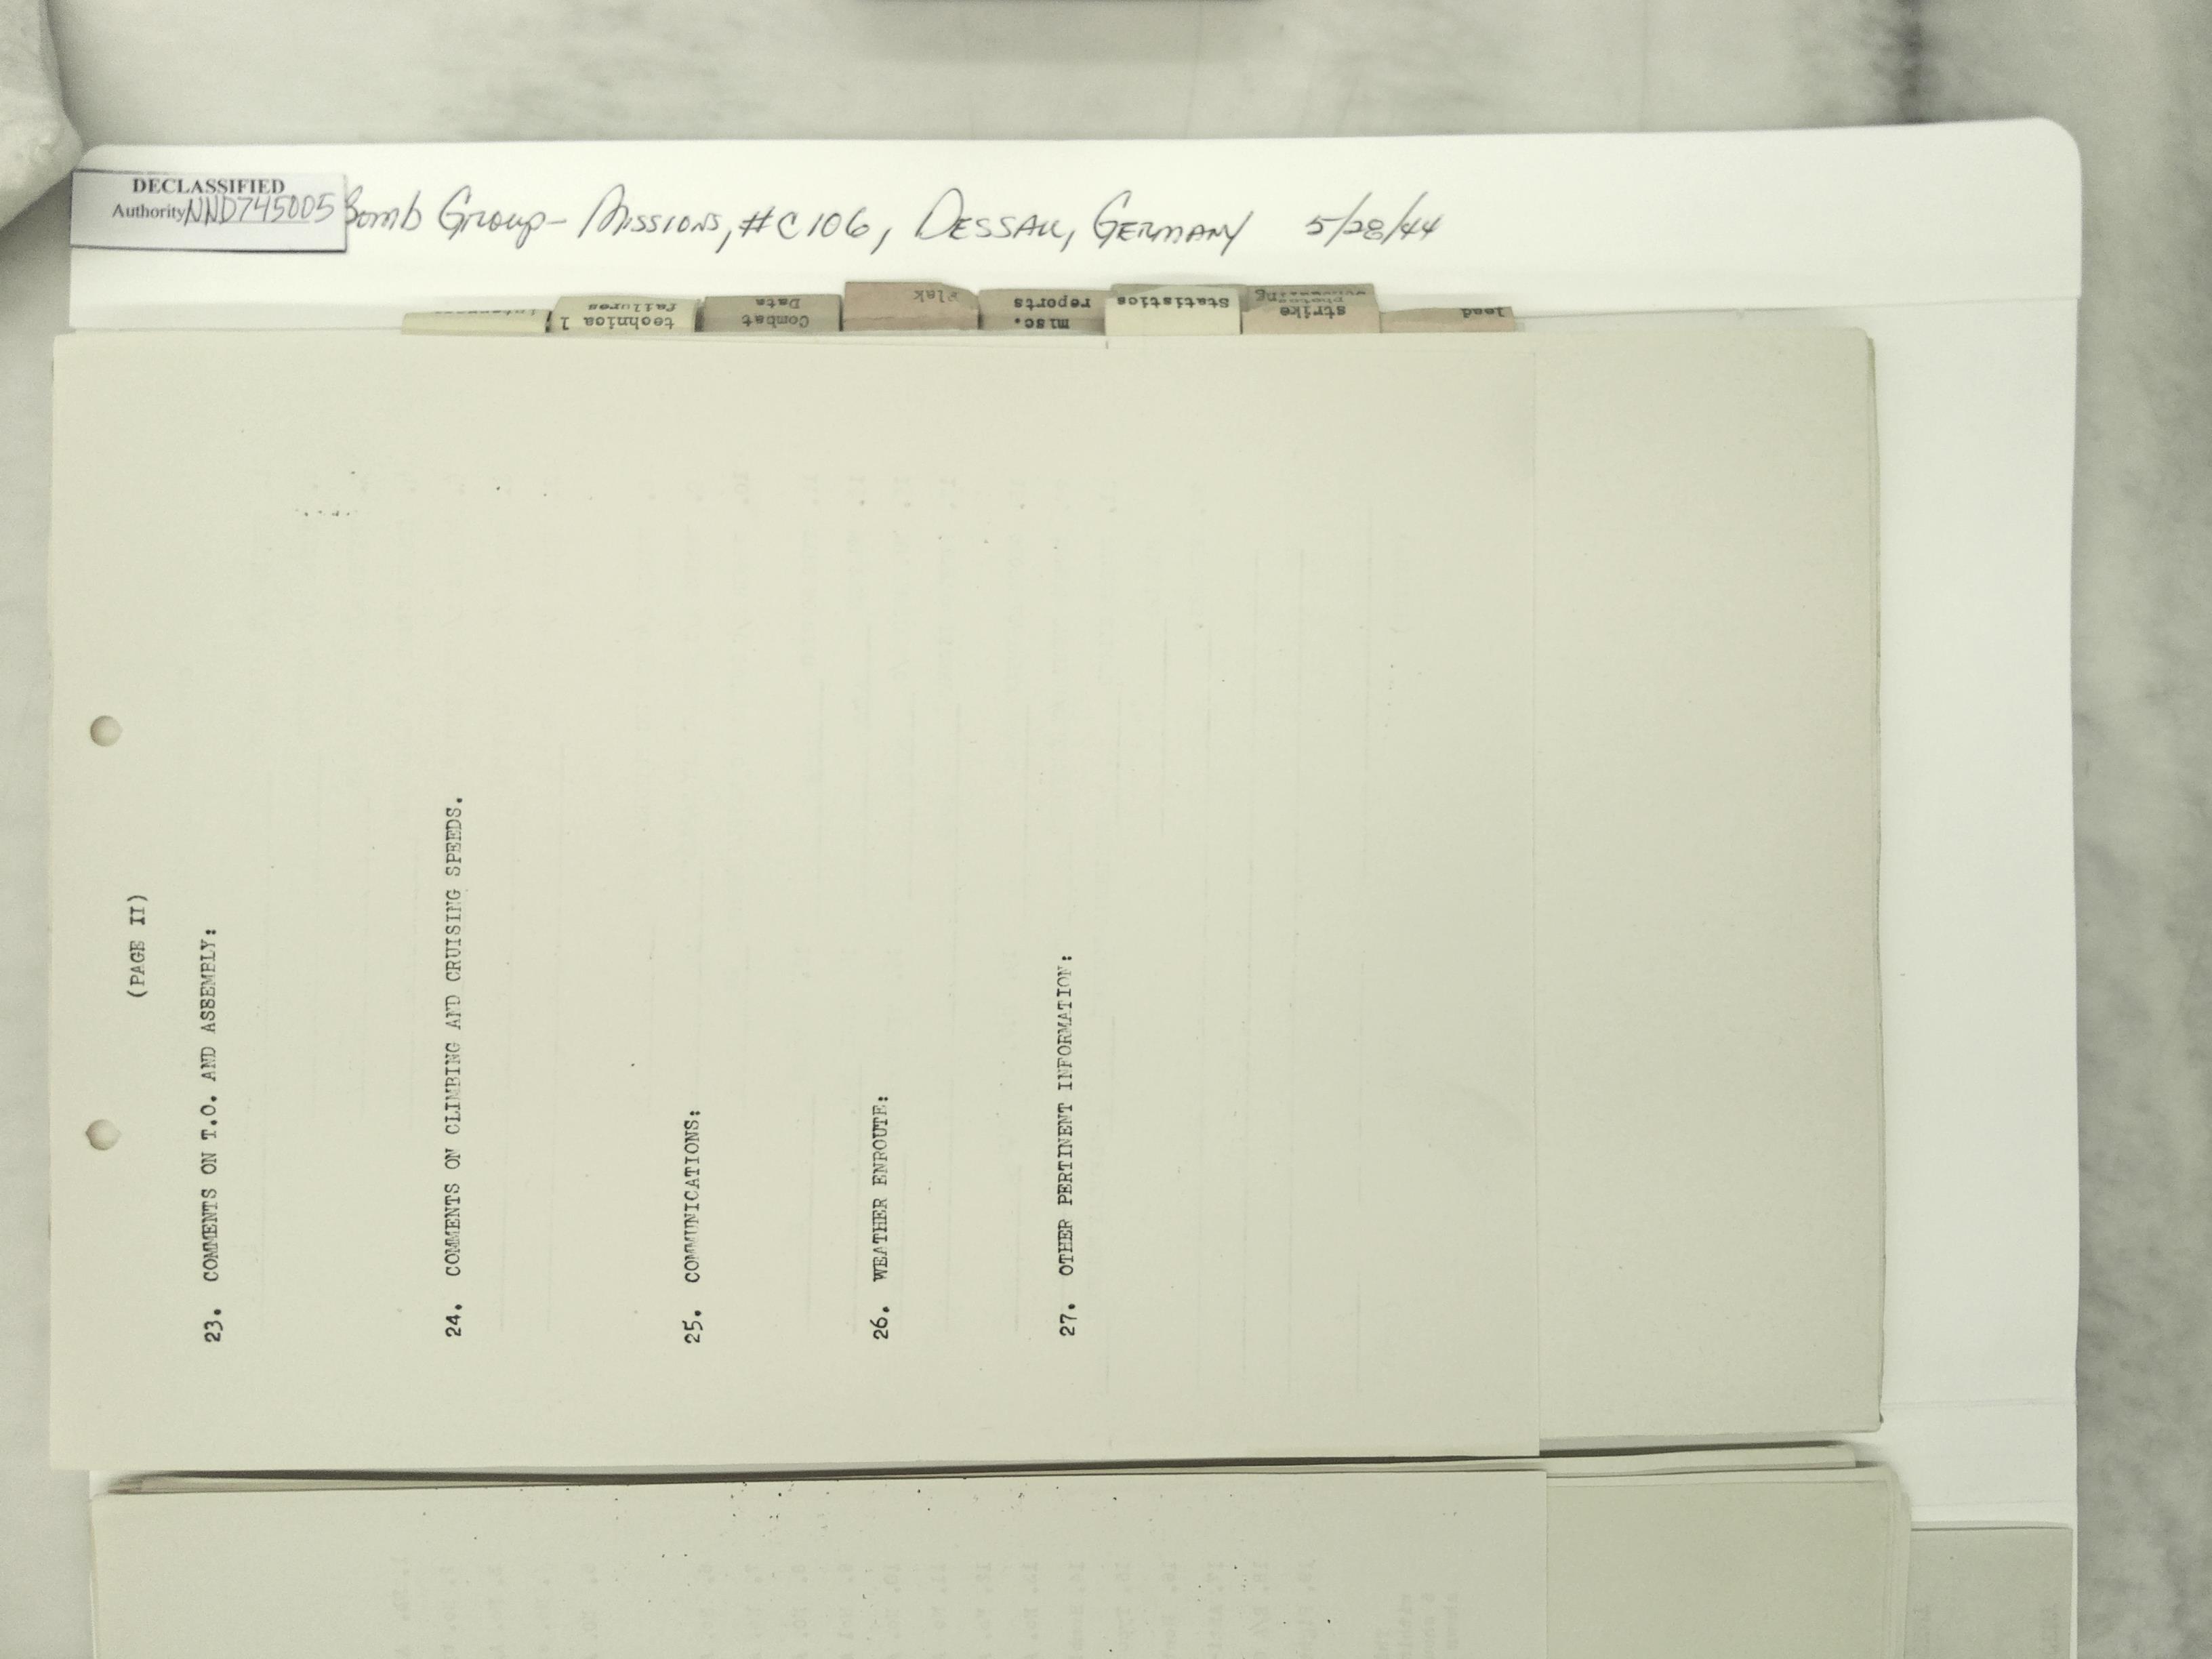 DECLASSIFIED
Authority NND745005
Bomb Group- Missions, #C106, Dessau, Germany 5/28/44
technical failures
Combat Data
flak
misc. reports
Statistics
strike photos
lead
(PAGE II)
23. COMMENTS ON T.O. AND ASSEMBLY:
24. COMMENTS ON CLIMBING AND CRUISING SPEEDS.
25. COMMUNICATIONS:
26. WEATHER ENROUTE:
27. OTHER PERTINENT INFORMATION: